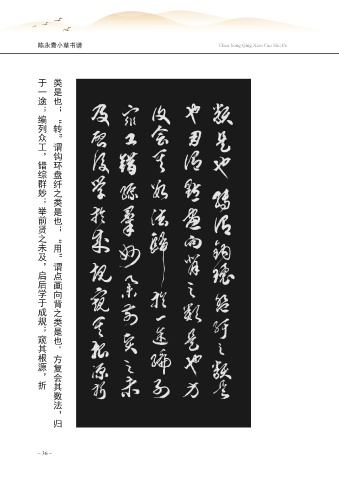 陈永青小草书谱
Chen Yong Qing Xiao Cao Shu Pu
类是也；“转”谓钩环盘纡之类是也；“用”谓点画向背之类是也。方复会其数法，归
于一途；编列众工，错综群妙；举前贤之未及，启后学于成规；窥其根源，析
类是也转谓钩环盘纡之类是
也用谓点画向背之类是也方
复会其数法归于一途编列
众工错综群妙举前贤之未
及启后学于成规窥其根源析
– 36 –